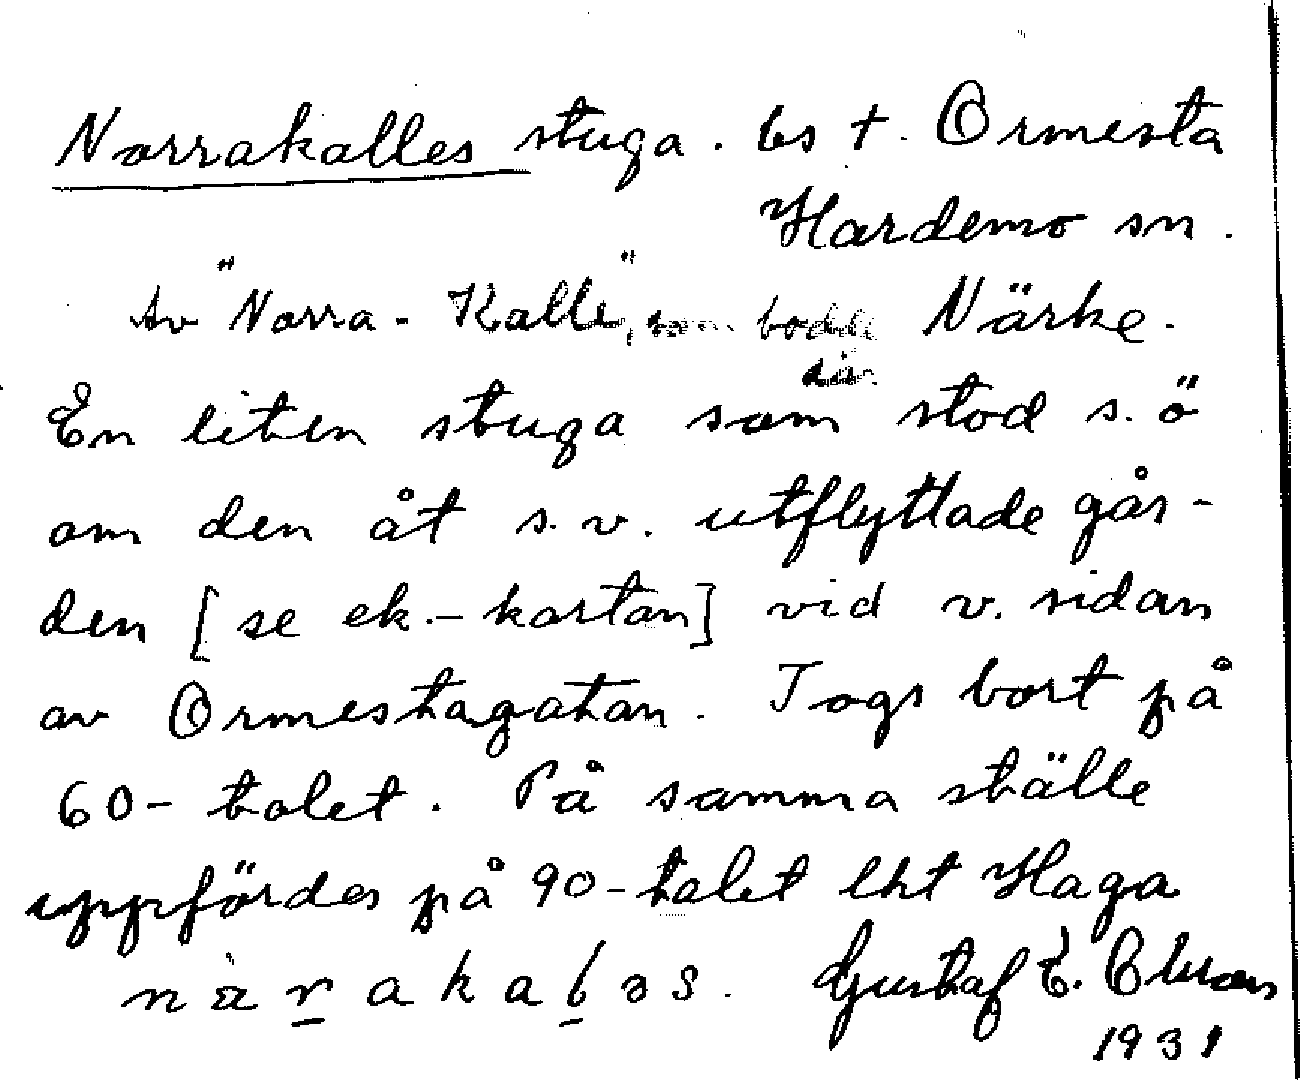 Norrakalles stuga. bs t. Ormesta
Hardemo sn.
Av "Norra-Kalle", som bodde Närke.
där
En liten stuga som stod s.ö
om den åt s.v. utflyttade går-
den [se ek.-kartan] vid v. sidan
av Ormestagatan. Togs bort på
60-talet. På samma ställe
uppfördes på 90-talet lht Haga
Gustaf E.
1931